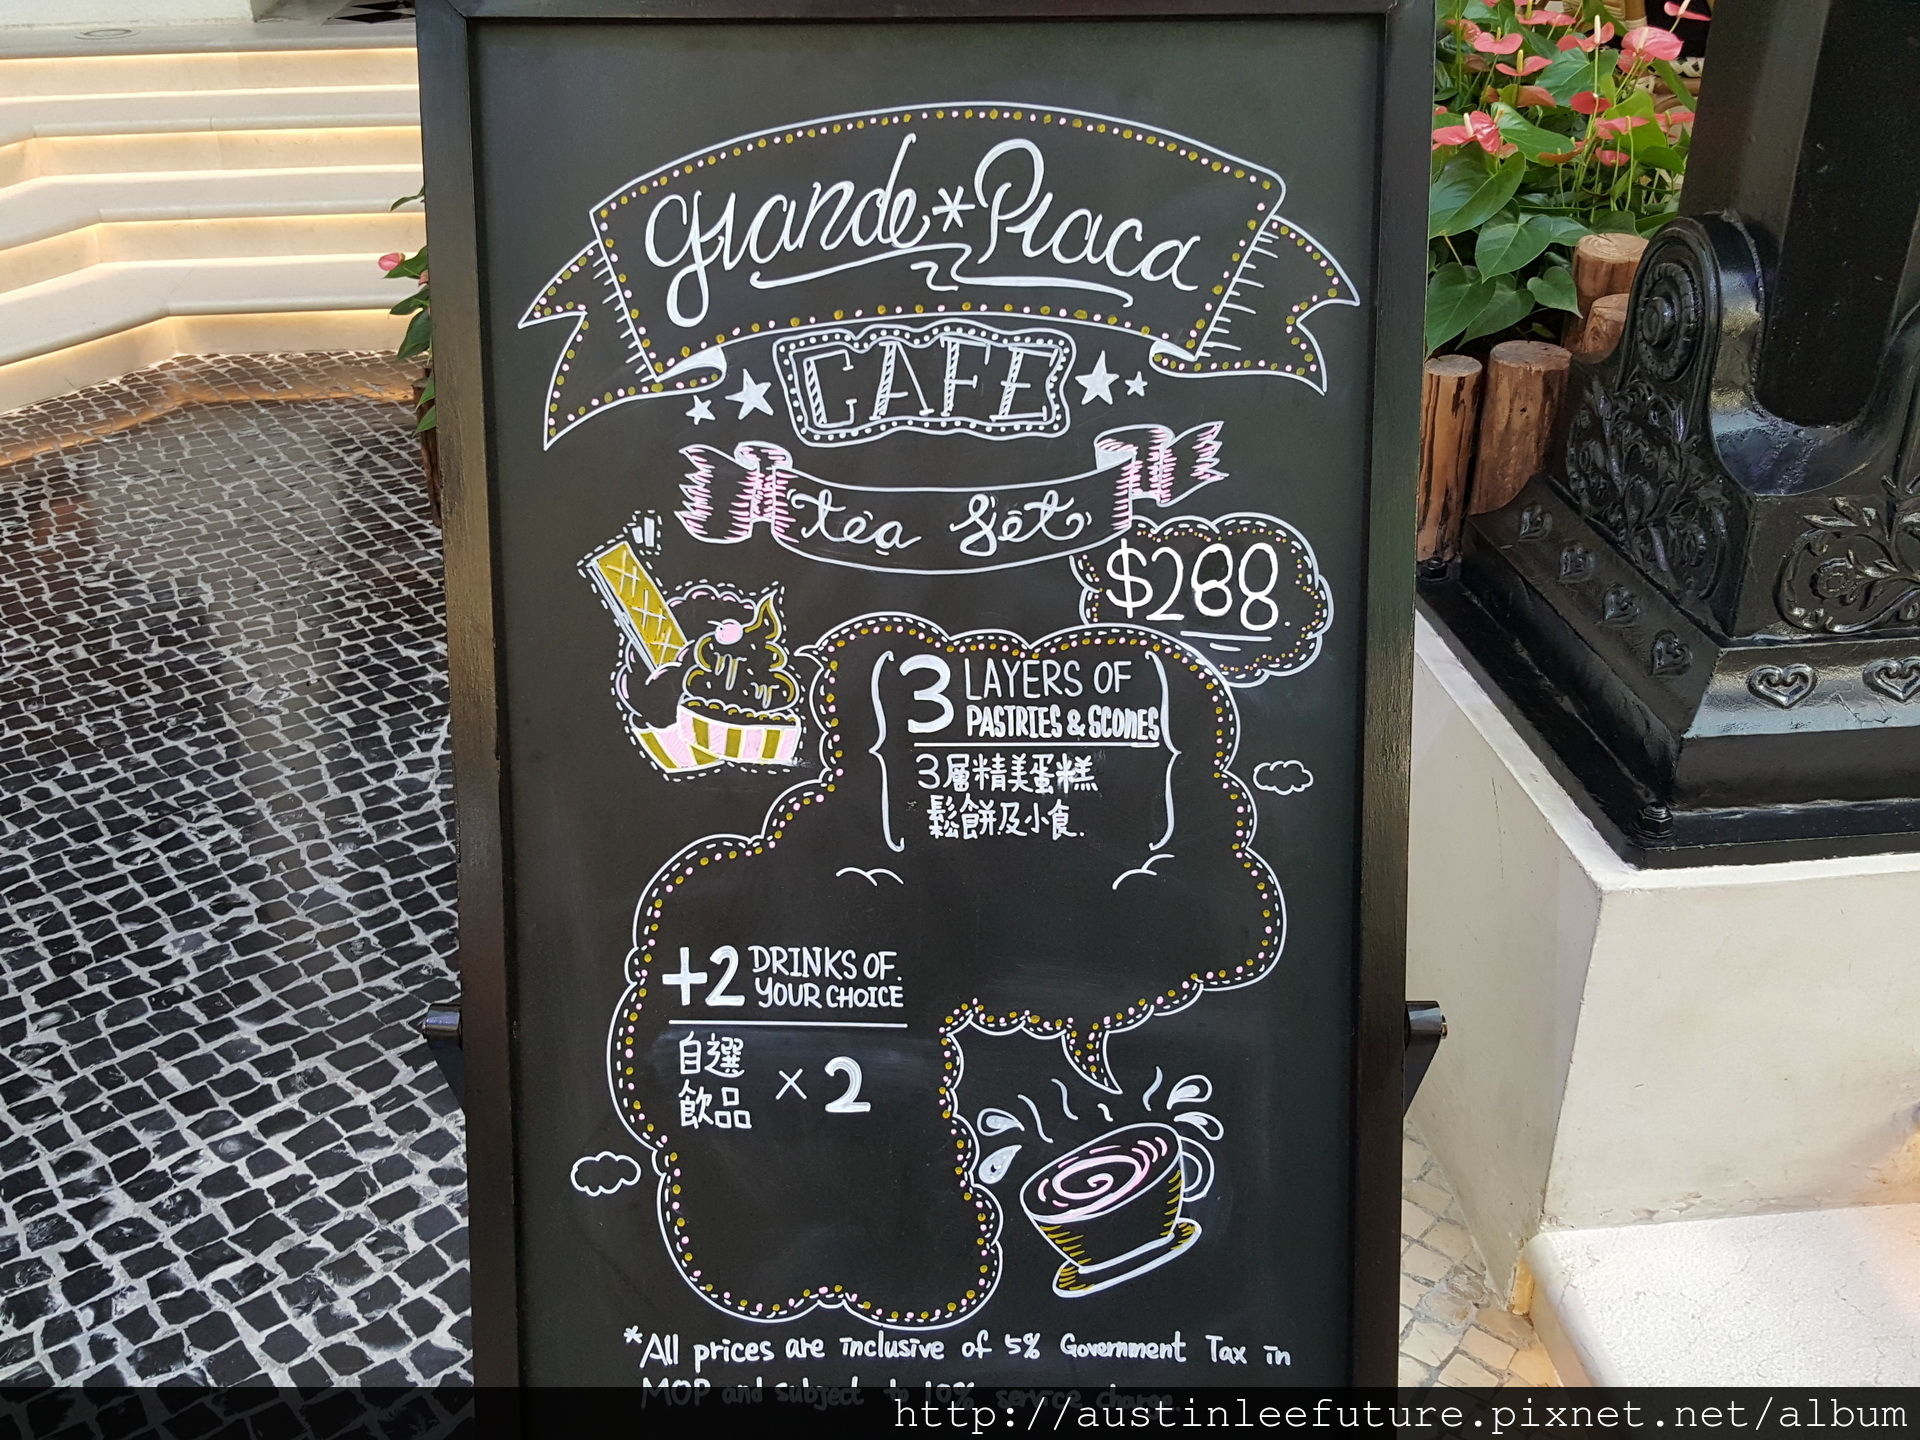 Grande * Praca
CAFE
tea Set
$288
3 LAYERS OF
PASTRIES & SCONES
3層精美蛋糕
鬆餅及小食.
+2 DRINKS OF.
YOUR CHOICE
自選
飲品 × 2
*All prices are inclusive of 5% Government Tax in
MOP and subject to 10% service charge.
http://austinleefuture.pixnet.net/album